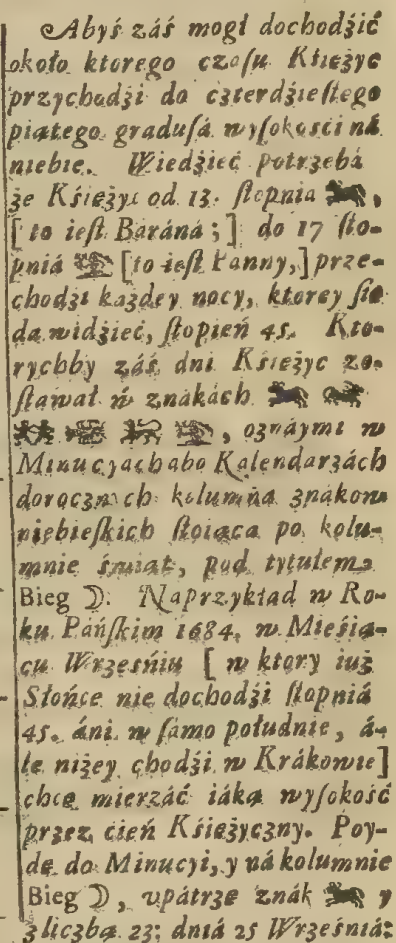 Abyś záś mogł dochodźić
około ktorego czaſu Kśiężyc
przychodźi do czterdźieſtego
piątego graduſá wyſokości ná
niebie. Wiedźieć potrzebá
że Kśiężyc od 13. ſtopnia ♈,
[to ieſt Báráná;] do 17 ſto-
pniá ♍ [to ieſt Panny,] prze-
chodźi każdey nocy, ktorey ſię
da widźieć, ſtopień 45. Kto-
rychby záś dni Kśiężyc zo-
ſtawał w znákách ♈ ♉
♊ ♋ ♌ ♍, oznáymi w
Minucyach abo Kalendarzách
dorocznych kolumná znákow
niebieſkich ſtoiąca po kolu-
mnie świąt, pod tytułem
Bieg ☽. Náprzykład w Ro-
ku Páńſkim 1684. w Mieśią-
cu Wrześniu [w ktory iuż
Słońce nie dochodźi ſtopniá
45. áni w ſámo południe, á-
le niżey chodźi w Krákowie]
chcę mierzáć iáką wyſokość
przez cień Kśiężyczny. Poy-
dę do Minucyi, y ná kolumnie
Bieg ☽, vpátrzę znák ♈ y
z liczbą 23; dniá 25 Wrześniá: